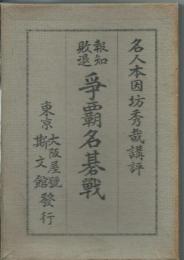 名人本因坊秀哉講評
報知
敗退
爭覇名碁戰
東京
大阪屋號
斯文館
發行